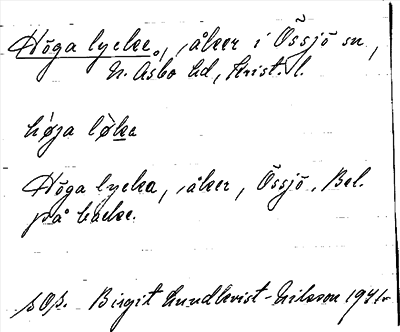 Höga lycke, åker i Össjö sn,
N. Åsbo hd, Krist. l.
höja løke
Höga lycka, åker, Össjö. Bel.
på backe.
Birgit Lundkvist-Nilsson 1941